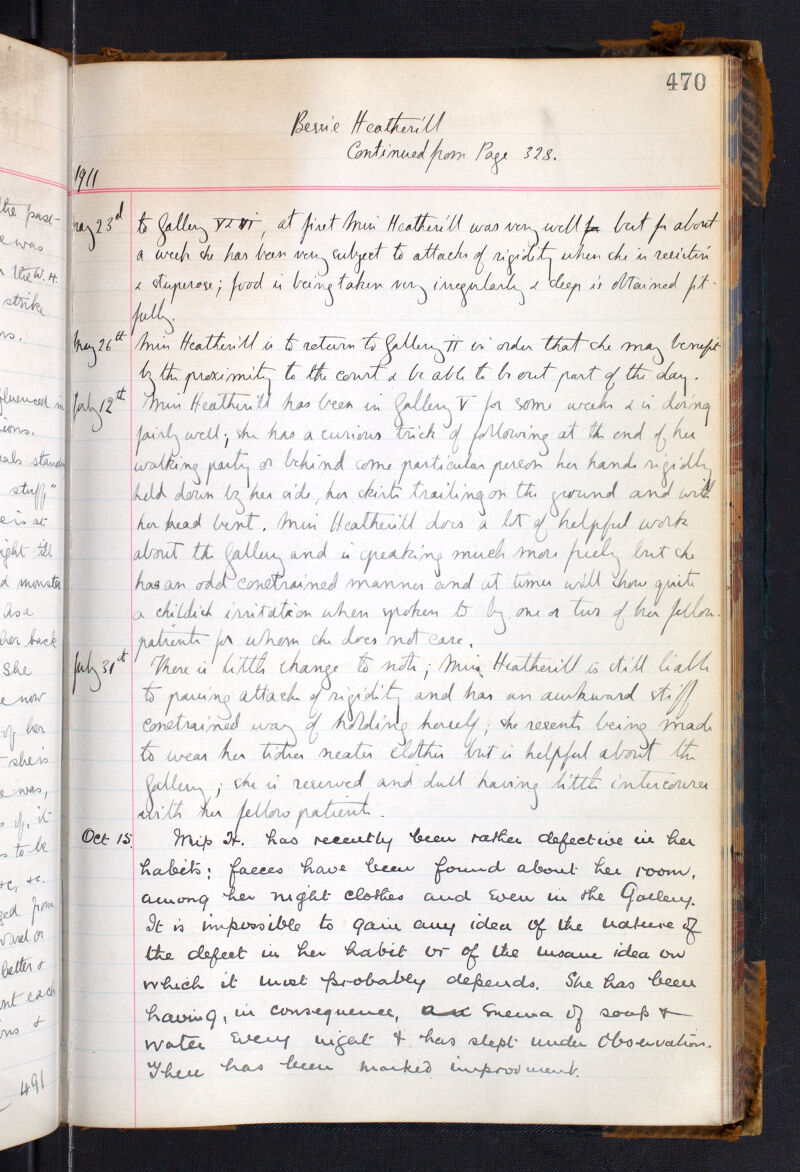 470
Bessie Heatherill
Continued from Page 328.
1911
May 23rd to Gallery VI, at first Miss Heatherill was very well but for about
a week she has been very subject to attacks of rigidity when she is resistive
& stuperose; food is being taken very irregularly & sleep is obtained fit-
fully.
May 26th Miss Heatherill is to return to Gallery II in order that she may benefit
by the proximity to the court & be able to be out part of the day.
July 12th Miss Heatherill has been in Gallery V for some weeks & is doing
fairly well; she has a curious trick of following at the end of her
walking party or behind some particular person her hands rigidly
held down by her side, her skirts trailing on the ground and with
her head bent. Miss Heatherill does a lot of helpful work
about the Gallery and is speaking much more freely but she
has an odd constrained manner and at times will show quite
a childish irritation when spoken to by one or two of her fellow-
patients for whom she does not care.
July 31st There is little change to note; Miss Heatherill is still liable
to passing attacks of rigidity and has an awkward stiff
constrained way of holding herself; she resents being made
to wear her tidier neater clothes but is helpful about the
Gallery; she is reserved and dull having little intercourse
with her fellow patients.
Oct 15. Miss H. has recently been rather defective in her
habits; faeces have been found about her room,
among her night clothes and even in the Gallery.
It is impossible to gain any idea of the nature of
the defect in her habit or of the insane idea on
which it most probably depends. She has been
having, in consequence, an enema of soap &
water every night & has slept under observation.
There has been marked improvement.
the past-
e was
the W. H.
strike
rs.
fluenced in
ions.
als stand
stuff"
e is at
ight till
& monster
As a
her back
She
e now
of her
she is
e was,
s if, it
s to be
&c, &c.
ged from
ward or
better &
nt each
ons &
491